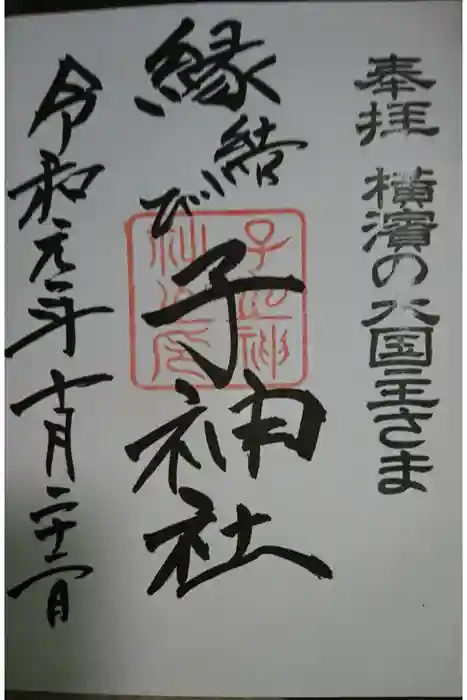 奉拝 横濱の大国主さま
縁結び 子神社
令和元年十月二十二日